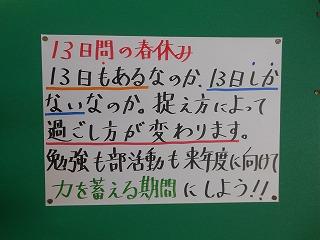 13日間の春休み
13日もあるなのか、13日しか
ないなのか。捉え方によって
過ごし方が変わります。
勉強も部活動も来年度に向けて
力を蓄える期間にしよう!!